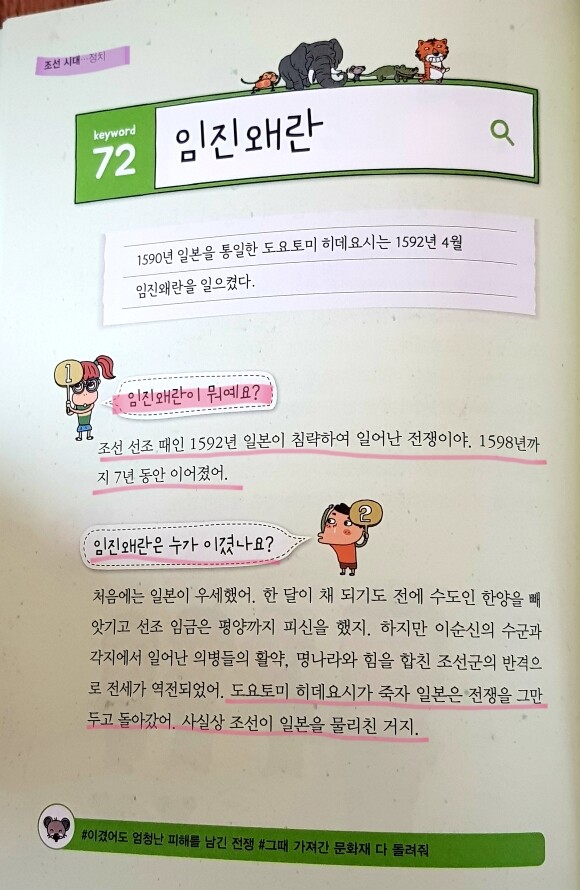 조선 시대…정치
keyword
72
임진왜란
1590년 일본을 통일한 도요토미 히데요시는 1592년 4월
임진왜란을 일으켰다.
1
임진왜란이 뭐예요?
조선 선조 때인 1592년 일본이 침략하여 일어난 전쟁이야. 1598년까
지 7년 동안 이어졌어.
2
임진왜란은 누가 이겼나요?
처음에는 일본이 우세했어. 한 달이 채 되기도 전에 수도인 한양을 빼
앗기고 선조 임금은 평양까지 피신을 했지. 하지만 이순신의 수군과
각지에서 일어난 의병들의 활약, 명나라와 힘을 합친 조선군의 반격으
로 전세가 역전되었어. 도요토미 히데요시가 죽자 일본은 전쟁을 그만
두고 돌아갔어. 사실상 조선이 일본을 물리친 거지.
#이겼어도 엄청난 피해를 남긴 전쟁 #그때 가져간 문화재 다 돌려줘